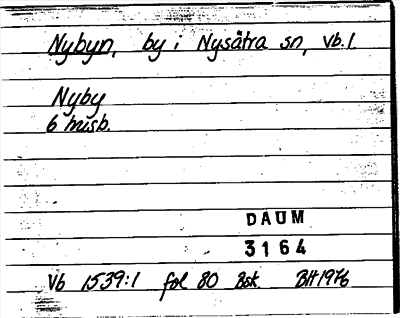 Nybyn, by i Nysätra sn, Vb.l.
Nyby
6 misb.
DAUM
3164
Vb 1539:1 fol 80 Bsk BH 1976